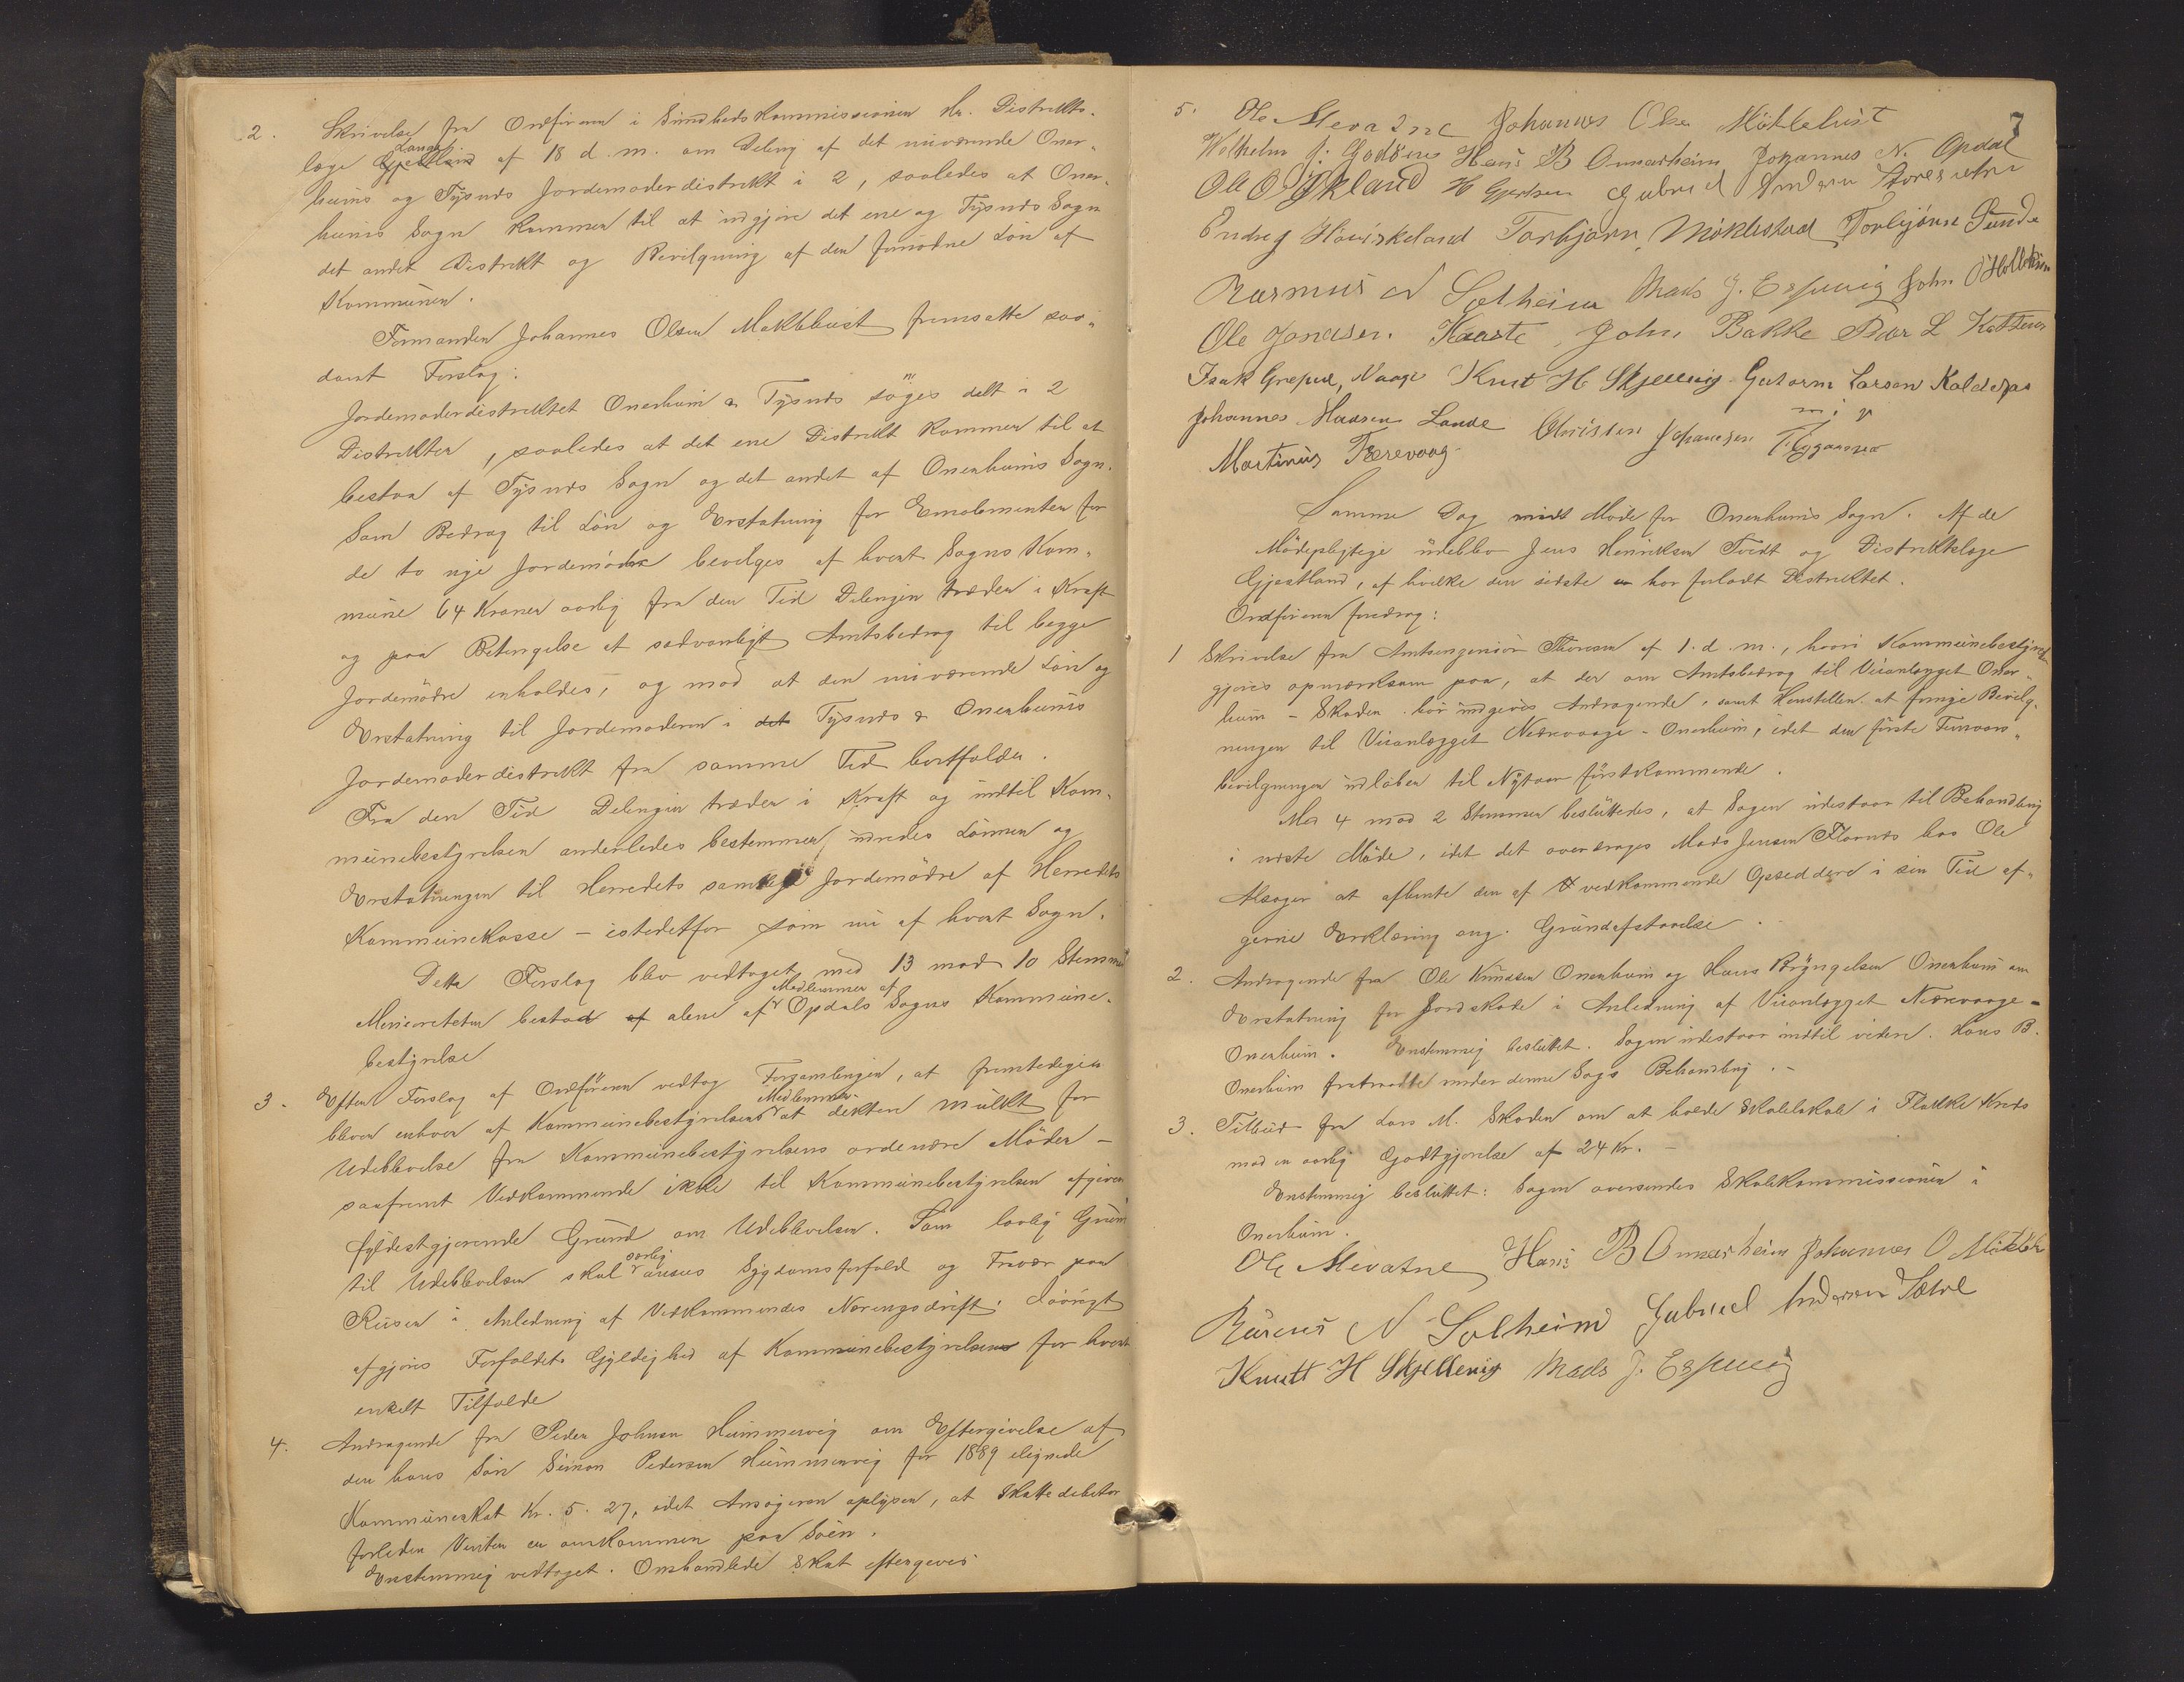 2. Skrivelse fra Ordføreren i Sundhedskommissionen Hr. Distrikts-
læge Lange af 18 d. m. om Deling af det nuværende Oner-
heims og Tysnes Jordemoderdistrikt i 2, saaledes at Oner-
heims Sogn kommer til at udgjøre det ene og Tysnes Sogn
det andet Distrikt og Bevilgning af den fornødne Løn af
Kommunen.
Formanden Johannes Olsen Møklebust fremsatte saa-
dant Forslag:
Jordemoderdistriktet Onerheim & Tysnes søges delt i 2
Distrikter, saaledes at det ene Distrikt kommer til at
bestaa af Tysnes Sogn og det andet af Onerheims Sogn.
Som Bedrag til Løn og Erstatning for Emolumenter for
de to nye Jordemødre bevilges af hvert Sogns Kom-
mune 64 Kroner aarlig fra den Tid Delingen træder i Kraft
og paa Betingelse at sedvanligt Amtsbedrag til begge
Jordemødre erholdes, og mod at den nuværende Løn og
Erstatning til Jordemoderen i det Tysnes & Onerheims
Jordemoderdistrikt fra samme Tid bortfalder.
Fra den Tid Delingen træder i Kraft og indtil Kom-
munebestyrelsen anderledes bestemmer, udredes Lønnen og
Erstatningen til Herredets samtlige Jordemødre af Herredets
Kommunekasse - istedetfor som nu af hvert Sogn.
Dette Forslag blev vedtaget med 13 mod 10 Stemmer
Minoriteten bestod af alene af Medlemmer af Opdals Sogns Kommune-
bestyrelse
3. Efter Forslag af Ordføreren vedtog Forsamlingen, at fremtidigen
bliver enhver af Kommunebestyrelsens Medlemmer at diktere mulkt for
Udeblivelse fra Kommunebestyrelsens ordenære Møder -
saafremt Vedkommende ikke til Kommunebestyrelsen afgiver
fyldestgjørende Grund om Udeblivelsen. Som lovlig Grund
til Udeblivelsen skal særlig ansees Sygdomsforfald og Fravær paa
Reiser i Anledning af Vedkommendes Næringsdrift; iøvrigt
afgjøres Forfaldets Gyldighed af Kommunebestyrelsen for hvert
enkelt Tilfælde
4. Andragende fra Peder Johnsen Hummervig om Eftergivelse af
den hans Søn Simon Pedersen Hummervig for 1889 ilignede
Kommuneskat Kr. 5. 27, idet Ansøgeren oplyser, at Skattedebitor
forleden Vinter er omkommen paa Søen.
Enstemmig vedtaget. Omhandlede Skat eftergives
7
5. Ole Mevatne Johannes Olsen Møklebust
Wilhelm J. Godøen Hans B Onnarheim Johannes N. Opdal
Ole O Økland H Gjertsen Gabriel Andersen
Endreg Hauskeland Torbjørn Møklestad Torbjørn Sunde
Rasmus N Solheim Mads J. Espevig John
Ole Jonassen Kaaste, John Bakke Peder L
Isak Grepne, Vaage Knut H Skjellevig Guttorm Larsen Kaldefos
Johannes Hansen Lande Christen Johannesen
Martinus Færevaag m. p. Flygansvær
Samme Dag Møde for Onerheims Sogn. Af de
Mødepligtige udeblev Jens Henriksen Tvedt og Distriktslæge
Gjestland, af hvilke den sidste har forladt Distriktet.
Ordføreren foredrog:
1 Skrivelse fra Amtsingeniør Thoresen af 1. d. m., hvori Kommunebestyrelsen
gjøres opmærksom paa, at der om Amtsbedrag til Veianlægget Oner-
heim - Skaden bør indgives Andragende, samt Henstillen at fornye Bevilg-
ningen til Veianlægget Nedrevaage - Onerheim, idet den første Femaars-
bevilgningen udløber til Nytaar førstkommende.
Med 4 mod 2 Stemmer besluttedes, at Sagen udestaar til Behandling
i næste Møde, idet det overdrages Mads Jensen Flornes hos Ole
Alsager at afhente den af vedkommende Opsiddere i sin Tid af-
givne Erklæring ang. Grundafstaaelse.
2. Andragende fra Ole Knudsen Onerheim og Hans Brýngelsen Onerheim om
Erstatning for Jordskade i Anledning af Veianlægget Nedrevaage -
Onerheim. Enstemmig besluttet. Sagen udestaar indtil videre. Hans B.
Onerheim fratraadte under denne Sags Behandling. -
3. Tilbud fra Lars M. Skaden om at holde Skolelokale i Flakke Kreds
mod en aarlig Godtgjørelse af 24 Kr. -
Enstemmig besluttet: Sagen oversendes Skolekommissionen i
Onerheim.
Ole Mevatne Hans B Onnarheim Johannes O Møkleb
Rasmus N Solheim Gabriel Andersen
Knutt H Skjellevig Mads J. Espevig